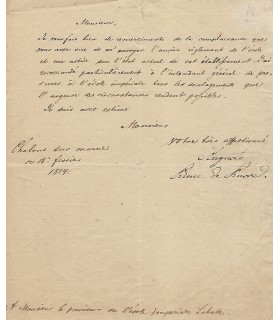 Monsieur,
Je vous fais bien de remerciments de la complaisance que
vous avez eue de m'envoyer l'ancien règlement de l'école
et une notice sur l'état actuel de cet établissement. J'ai
recommandé particulièrement à l'intendant général de
à l'école impériale tous les soulagements que
l'urgence des circonstances rendent possibles.
Je suis avec estime
Monsieur
Votre très affectionné
Chalons sur marne
ce 18 fevrier
1814.
Auguste
Prince de Prusse.
A Monsieur le de l'école impériale